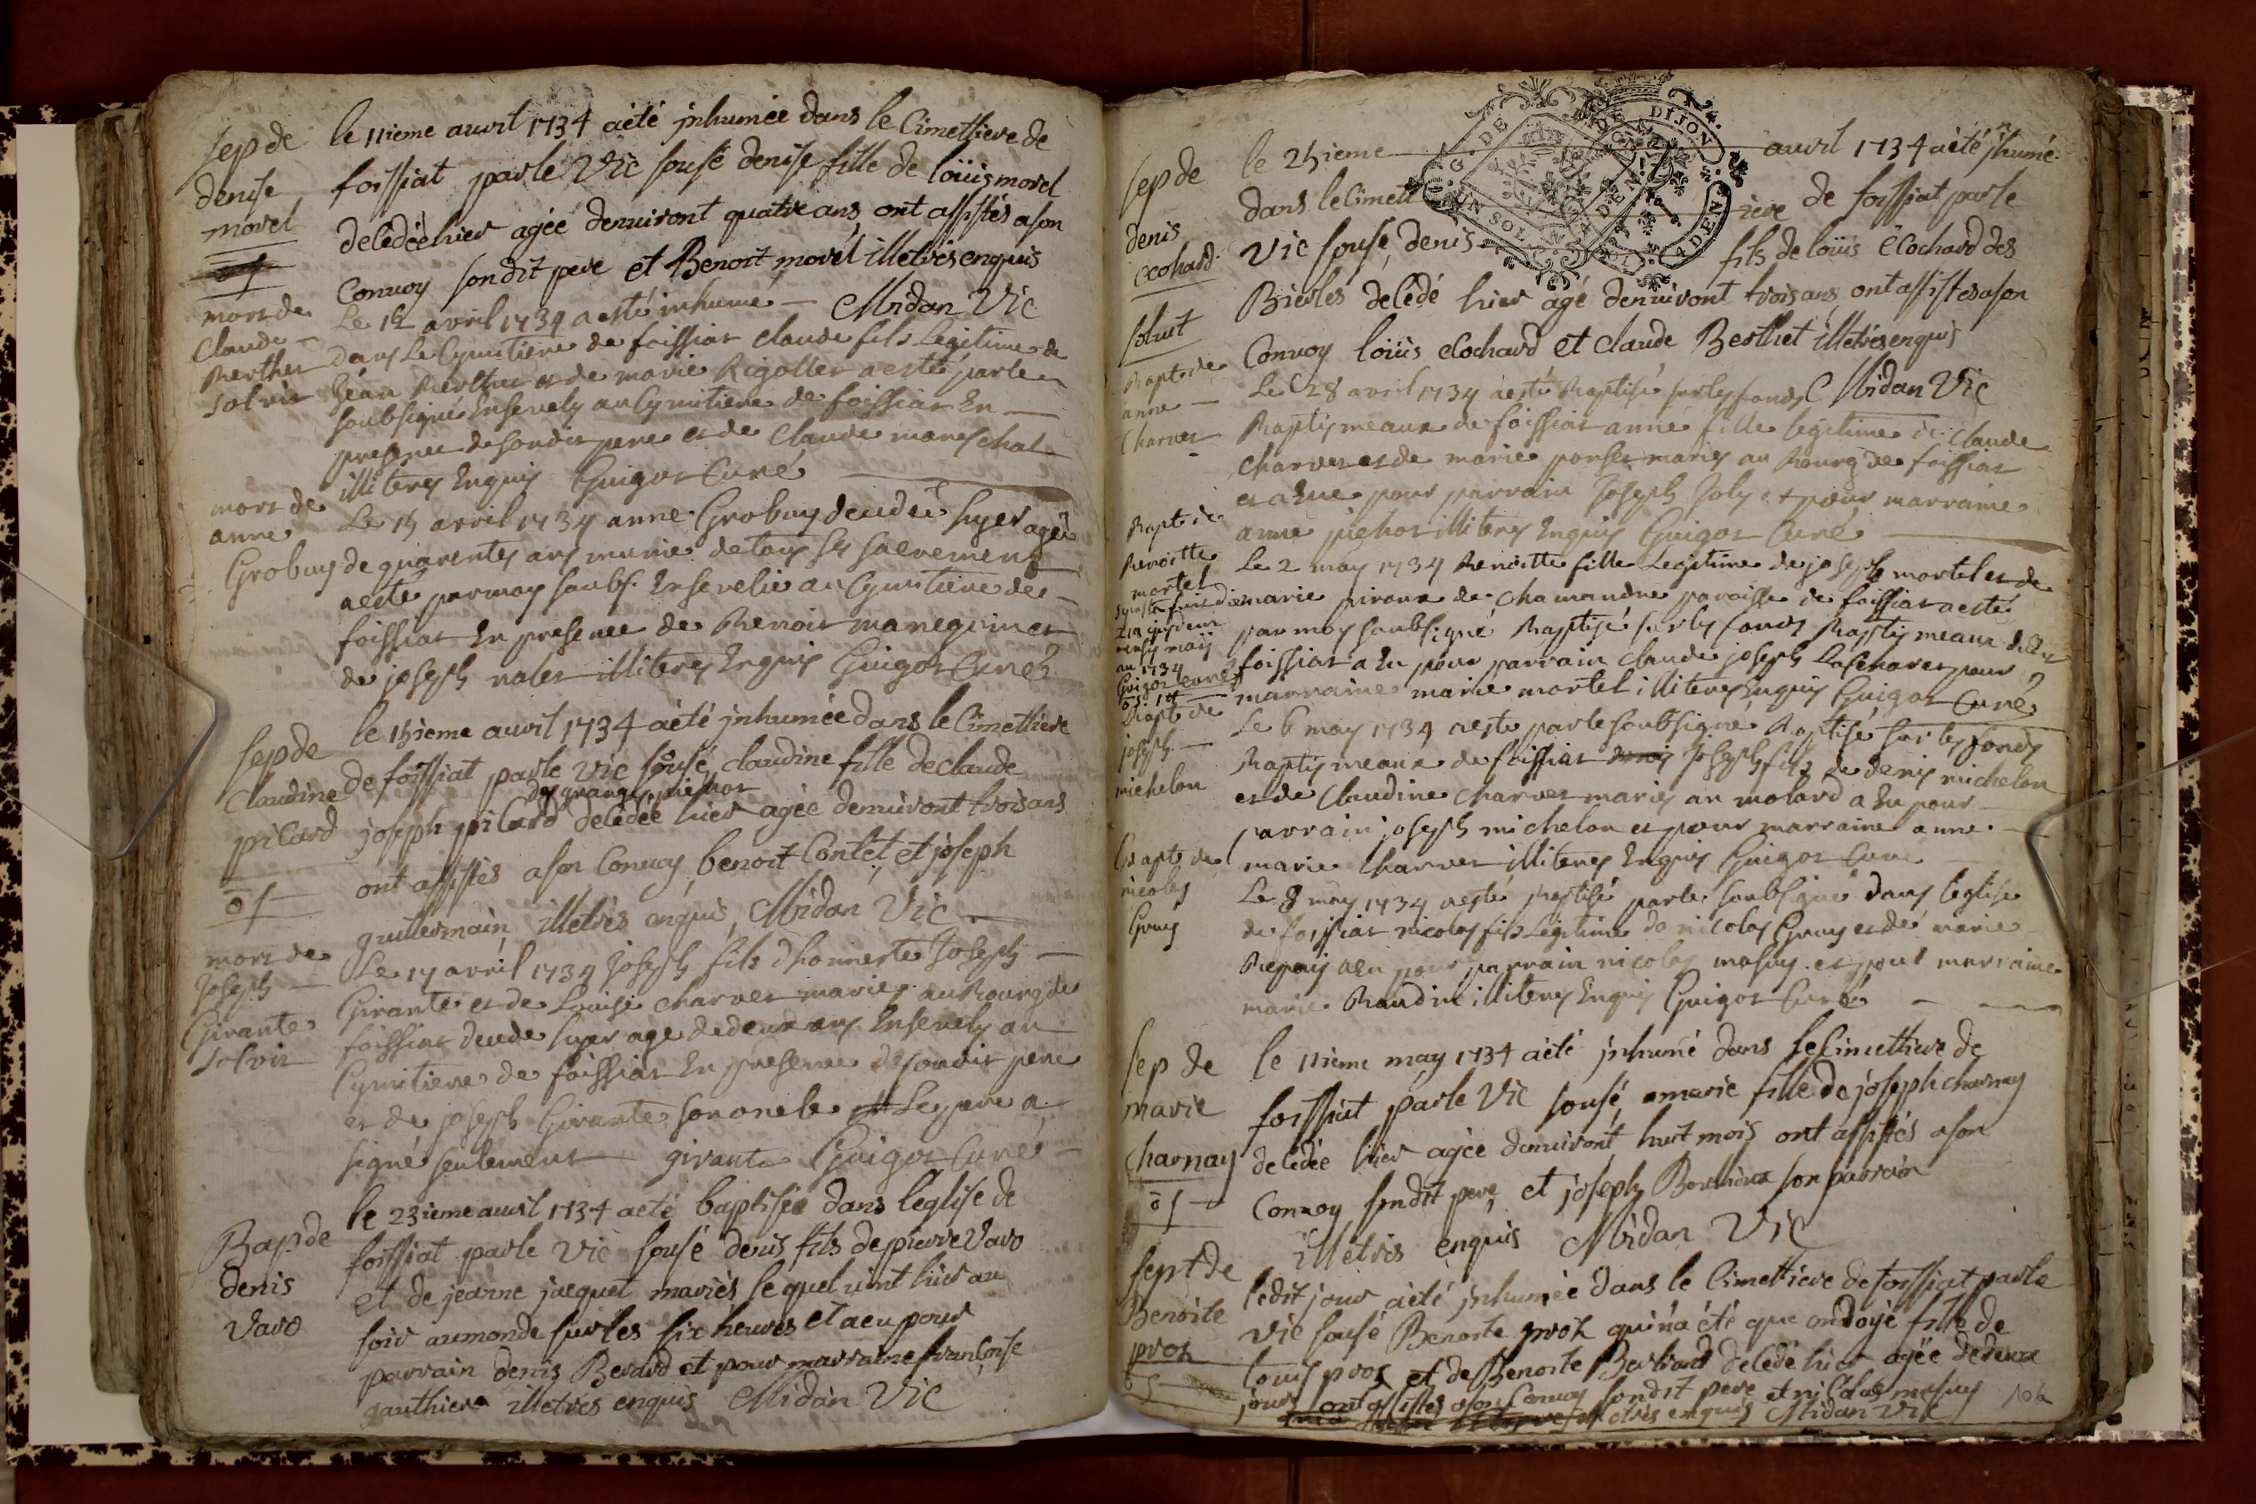 sep de
denise
morel
le 11ieme avvril 1734 aété jnhumée dans le Cimettiere de
foissiat par le Vic sousé denise fille de loüis morel
decedée hier agée denuiront quatre ans ont assistés a son
Convoy son dit pere et Benoit morel illetrés enquis
Midan Vic
mort de
Claude
Berthet
sol vit
Le 12 avril 1734 a esté inhumé
Dans Le Cymitiere de foissiat Claude fils Legitime de
Jéan Berthet et de marie Rigollet a esté par le
soubsigné Ensevely au Cymitiere de foissiat En
presence de son dit pere et de Claude mareschal
illiterés Enquis Guigot Curé
mort de
anne
Grobuy
Le 15 avril 1734 anne Grobuy decedée hyer agée
de quarentes ans munie de tous ses sacremens
a esté par moy soubs. Ensevelie au Cymitiere de
foissiat En presence de Benoit maneguin et
de joseph nalet illiterés Enquis Guigot Curé
sep de
Claudine
pilard
le 15ieme avvril 1734 aété jnhumée dans le Cimettiere
de foissiat par le Vic sousé claudine fille de claude
des granges michot
joseph pilard decedée hier agée denuiront trois ans
ont assistés a son Convoy benoit Contet et joseph
guillermain illetrés enquis Midan Vic
mort de
Joseph
Girante
sol vit
Le 17 avril 1734 Joseph fils d'honneste Joseph
Girante et de Louise Charvet mariés au Bourg de
foissiat decede hyer age de deux ans Ensevely au
Cymitiere de foissiat En presence de son dit pere
et de joseph Girante son oncle Le pere a
signé seulement girante Guigot Curé
Bap de
denis
Varo
le 23ieme avvril 1734 aété baptisée dans leglise de
foissiat par le Vic sousé denis fils de pierre Varo
et de jeanne jacquet mariés le quel vint hier au
soir au monde sur les six heures et a eu pour
parrain denis Berard et pour marraine francoise
gauthier illetrés enquis Midan Vic
sep de
denis
ecochard
solvit
G. DE DIJON
UN SOL
DEN
le 25ieme avvril 1734 aété jnhumé
dans le Cimettiere de foissiat par le
Vic sousé denis fils de loüis Ecochard des
Bierles decedé hier agé denuiront trois ans ont assistés a son
Convoy loüis ecochard et claude Berthet illetrés enquis
Midan Vic
Bapt de
anne
Charvet
Le 28 avril 1734 a esté Baptisé sur les fonds
Baptismeaux de foissiat anne fille legitime de Claude
Charvet et de marie ponset mariés au Bourg de foissiat
et a Eue pour parrain Joseph Joly et pour marraine
anne michot illiterés Enquis Guigot Curé
Bapt de
Benoitte
mortel
Le 2 may 1734 Benoitte fille Legitime de joseph mortel et de
marie piroux de Chamandre paroisse de foissiat a esté
par moy soubsigné Baptisé sur les fonds Baptismeaux de
foissiat a Eu pour parrain Claude joseph et pour
marraine marie mortel illiterés Enquis Guigot Curé
mensis maij
an 1734
Guigot curé
Bapt de
joseph
michelon
Le 6 may 1734 a esté par le soubsigné Baptisé sur les fonds
Baptismeaux de foissiat Joseph fils de denis michelon
et de Claudine Charvet mariés au molard a Eu pour
parrain joseph michelon et pour marraine anne
marie Charvet illiterés Enquis Guigot Curé
Bapt de
nicolas
Gruy
Le 8 may 1734 a esté Baptisé par le soubsigné dans l'eglise
de foissiat nicolas fils Legitime de nicolas Gruy et de marie
a eu pour parrain nicolas masuy et pour marraine
marie Baudin illiterés Enquis Guigot Curé
sep de
marie
Charnay
le 11ieme may 1734 aété jnhumé dans le Cimettiere de
foissiat par le Vic sousé marie fille de joseph charnay
decedée hier agée denuiront huit mois ont assistés a son
Convoy son dit pere et joseph son parrain
illetrés enquis Midan Vic
sept de
Benoite
pros
ledit jour aété jnhumée dans le Cimettiere de foissiat par le
Vic sousé Benoite pros qui n'a été que ondoyé fille de
louis pros et de Benoite Bertrand decedé hier agée de deux
jours ont assistés a son Convoy son dit pere et nicolas masuy
illetrés enquis Midan Vic